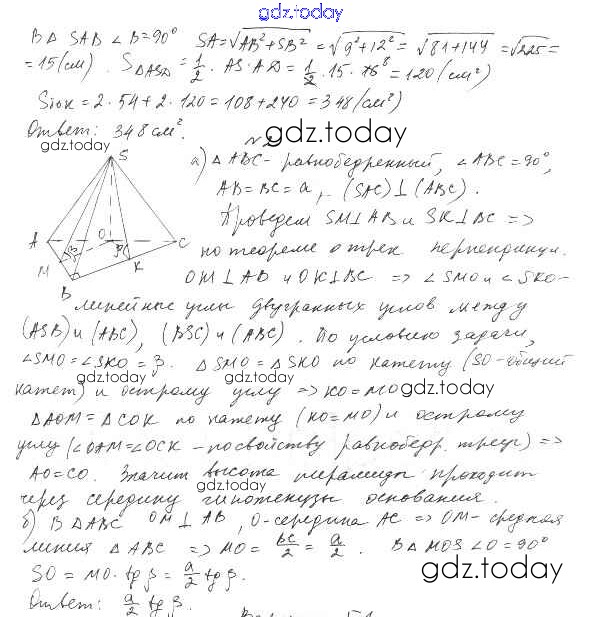 gdz.today
В Δ SAB ∠B=90° SA=√AB²+SB² = √9²+12² = √81+144 = √225 =
= 15(см). S ΔASD = 1/2 · AS·AD = 1/2 · 15 · 16 8 = 120 (см²)
Sбок = 2·54+2·120=108+240=348(см²)
Ответ: 348 см².
gdz.today
№2
gdz.today
а) Δ ABC- равнобедренный, ∠ABC=90°,
AB=BC=a, (SAC)⊥(ABC).
Проведем SM⊥AB и SK⊥BC =>
по теореме о трех перпендикул.
OM⊥AB и OK⊥BC => ∠SMO и ∠SKO-
S
A
O
C
M
B
K
β
β
линейные углы двугранных углов между
(ASB) и (ABC), (BSC) и (ABC). По условию задачи,
∠SMO=∠SKO=β. ΔSMO=ΔSKO по катету (SO-общий
gdz.today
gdz.today
катет) и острому углу => KO=MO
gdz.today
ΔAOM=ΔCOK по катету (KO=MO) и острому
углу (∠OAM=∠OCK - по свойству равнобедр. треуг) =>
AO=CO. Значит высота пирамиды проходит
gdz.today
через середину гипотенузы основания.
б) В ΔABC OM⊥AB, O-середина AC => OM- средняя
линия Δ ABC => MO = BC/2 = a/2. В Δ MOS ∠O=90°
SO = MO·tg β = a/2 tg β.
gdz.today
Ответ: a/2 tg β.